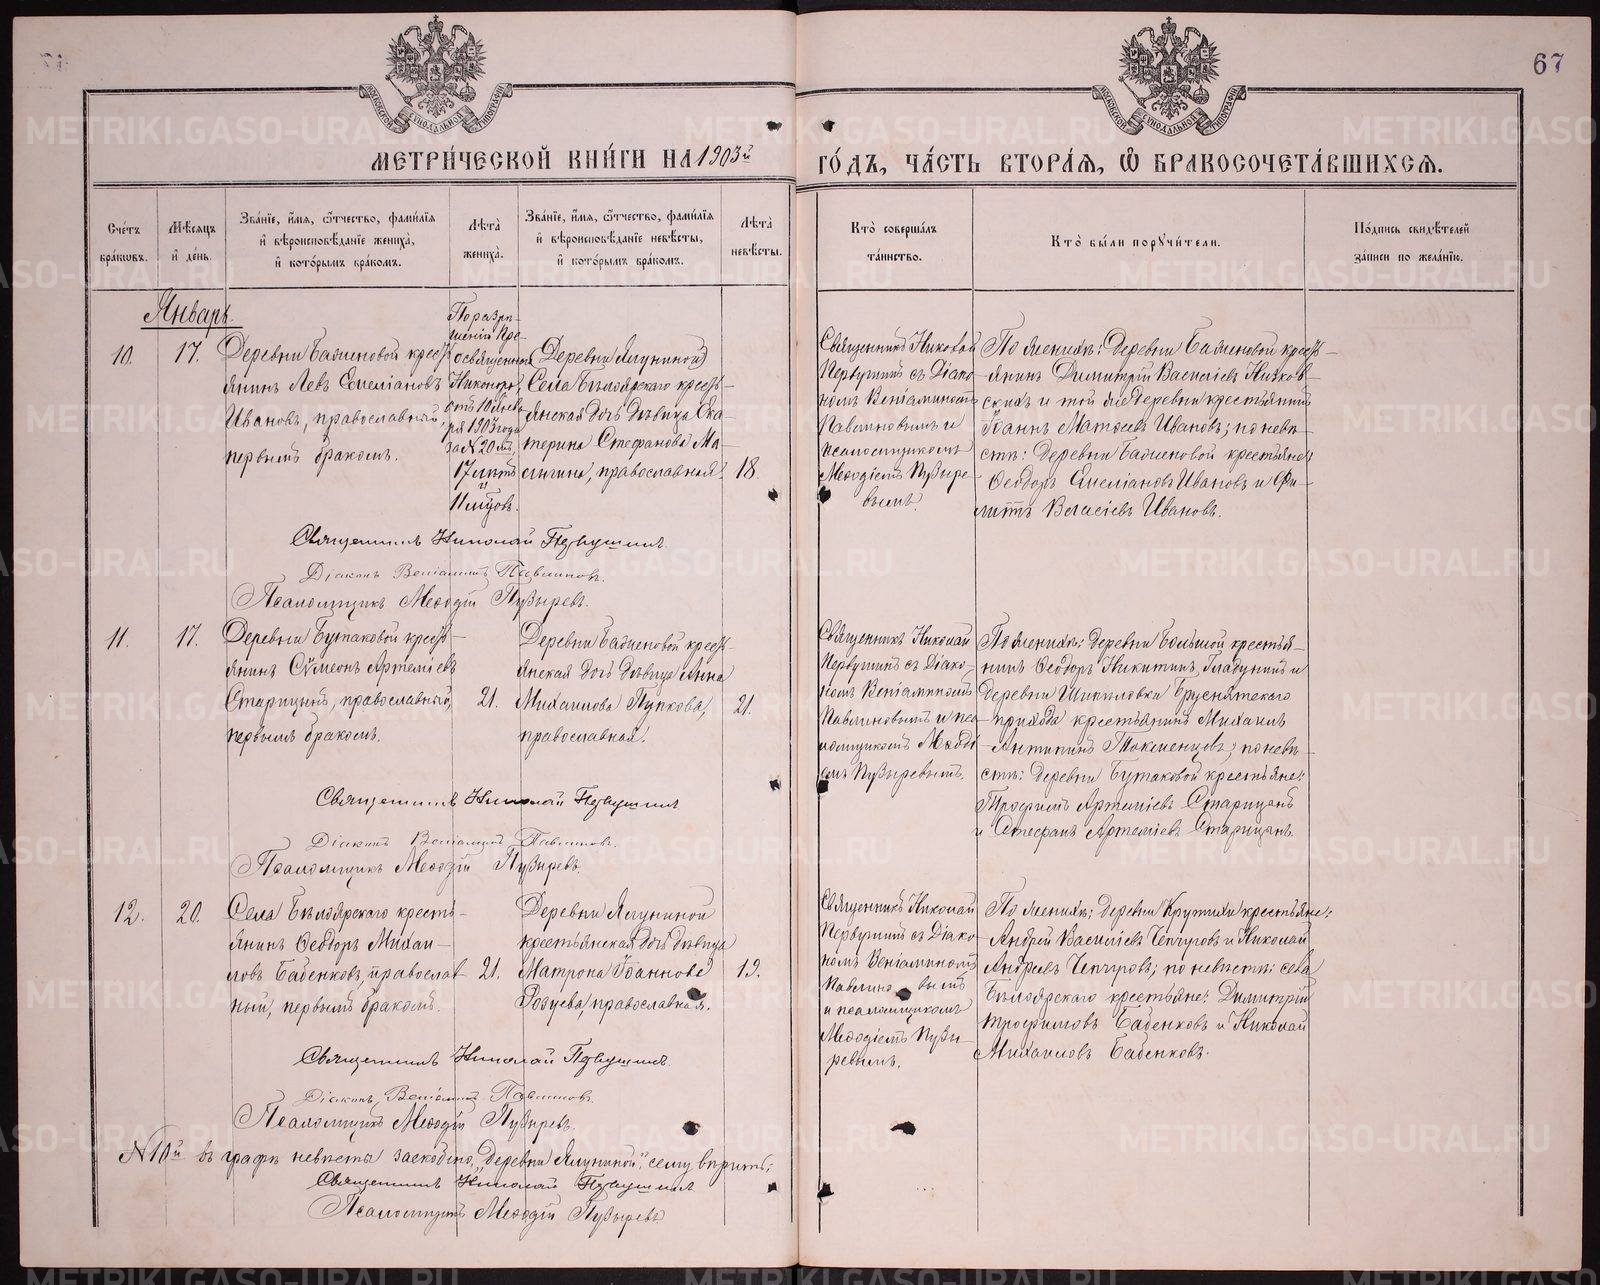 67
МОСКОВСКОЙ СѴНОДАЛЬНОЙ ТИПОГРАФІИ
МОСКОВСКОЙ СѴНОДАЛЬНОЙ ТИПОГРАФІИ
МЕТРИ́ЧЕСКОЙ КНИ́ГИ НА 1903й
ГО́ДЪ, ЧА́СТЬ ВТОРА́Я, Ѡ БРАКОСОЧЕТА́ВШИХСЯ.
Сче́тъ бра́кѡвъ.
Мѣ́сяцъ и҆ де́нь.
Зва́нїе, и҆́мя, ѻ҆́тчество, фамилїя и҆ вѣроисповѣ́данїе жениха̀, и҆ кото́рымъ бра́комъ.
Лѣ́та жениха̀.
Зва́нїе, и҆́мя, ѻ҆́тчество, фамилїя и҆ вѣроисповѣ́данїе невѣ́сты, и҆ кото́рымъ бра́комъ.
Лѣ́та невѣ́сты.
Кто̀ соверша́лъ та́инство.
Кто̀ бы́ли порꙋчи́тели.
По́дпись свидѣ́телей за́писи по жела́нїю.
Январь
10.
17.
Деревни Баженовой кресть-
янинъ Левъ Емеліановъ
Ивановъ, православный,
первымъ бракомъ.
По разрѣ-
шенію Прe-
освященнаго
Никанора
отъ 10 Янва-
ря 1903 года
за № 20мъ,
17 лѣтъ
и
11 мѣсцовъ.
Деревни Ялуниной
Села Бѣлоярскаго кресть-
янская дочь дѣвица Ека-
терина Стефанова Ма-
лыгина, православная.
18.
Священникъ Николай
Первушинъ съ Діако-
номъ Веніаминомъ
Павлиновымъ и
псаломщикомъ
Меѳодіемъ Пузыре-
вымъ.
По женихѣ: деревни Баженовой кресть-
янинъ Димитрій Василіевъ
и той же деревни крестьянинъ
Іоаннъ Матѳеевъ Ивановъ; по невѣ-
стѣ: деревни Баженовой крестьяне:
Ѳеодоръ Емеліановъ Ивановъ и Фи-
липпъ Власіевъ Ивановъ.
Священникъ Николай Первушинъ.
Діаконъ Веніаминъ Павлиновъ.
Псаломщикъ Меѳодій Пузыревъ.
11.
17.
Деревни Бутаковой кресть-
янинъ Сѵмеонъ Артеміевъ
Старицынъ, православный,
первымъ бракомъ.
21.
Деревни Баженовой кресть-
янская дочь дѣвица Анна
Михаилова Пупкова,
православная.
21.
Священникъ Николай
Первушинъ съ Діако-
номъ Веніаминомъ
Павлиновымъ и пса-
ломщикомъ Меѳоді-
емъ Пузыревымъ.
По женихѣ: деревни Большой крестья-
нинъ Ѳеодоръ Никитинъ Гладунинъ и
деревни Шипиловки Бруснятскаго
прихода крестьянинъ Михаилъ
Антипинъ Токменцовъ; по невѣ-
стѣ: деревни Бутаковой крестьяне:
Трофимъ Артеміевъ Старицынъ
и Стефанъ Артеміевъ Старицынъ.
Священникъ Николай Первушинъ
Діаконъ Веніаминъ Павлиновъ.
Псаломщикъ Меѳодій Пузыревъ.
12.
20.
Села Бѣлоярскаго кресть-
янинъ Ѳеодоръ Михаи-
ловъ Бабенковъ, православ-
ный, первымъ бракомъ.
21.
Деревни Ялуниной
крестьянская дочь дѣвица
Матрона Іоаннова
православная.
19.
Священникъ Николай
Первушинъ съ Діако-
номъ Веніаминомъ
Павлиновымъ
и псаломщикомъ
Меѳодіемъ Пузы-
ревымъ.
По женихѣ: деревни Крутихи крестьяне:
Андрей Василіевъ Чепчуговъ и Николай
Андреевъ Чепчуговъ; по невѣстѣ: села
Бѣлоярскаго крестьяне: Димитрій
Трофимовъ Бабенковъ и Николай
Михаиловъ Бабенковъ.
Священникъ Николай Первушинъ.
Діаконъ Веніаминъ Павлиновъ.
Псаломщикъ Меѳодій Пузыревъ.
№ 10й въ графѣ невѣсты заскоблено „деревни Ялуниной", сему вѣрить;
Священникъ Николай Первушинъ
Псаломщикъ Меѳодій Пузыревъ
METRIKI.GASO-URAL.RU